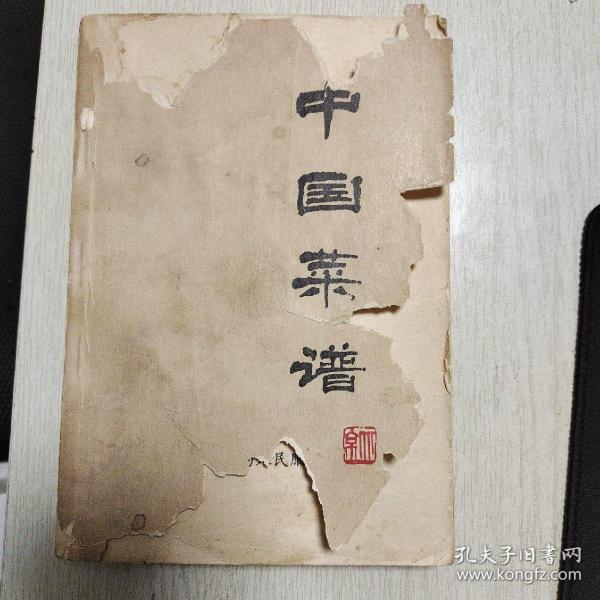 中国菜谱
民服
孔夫子旧书网
www.kongfz.com